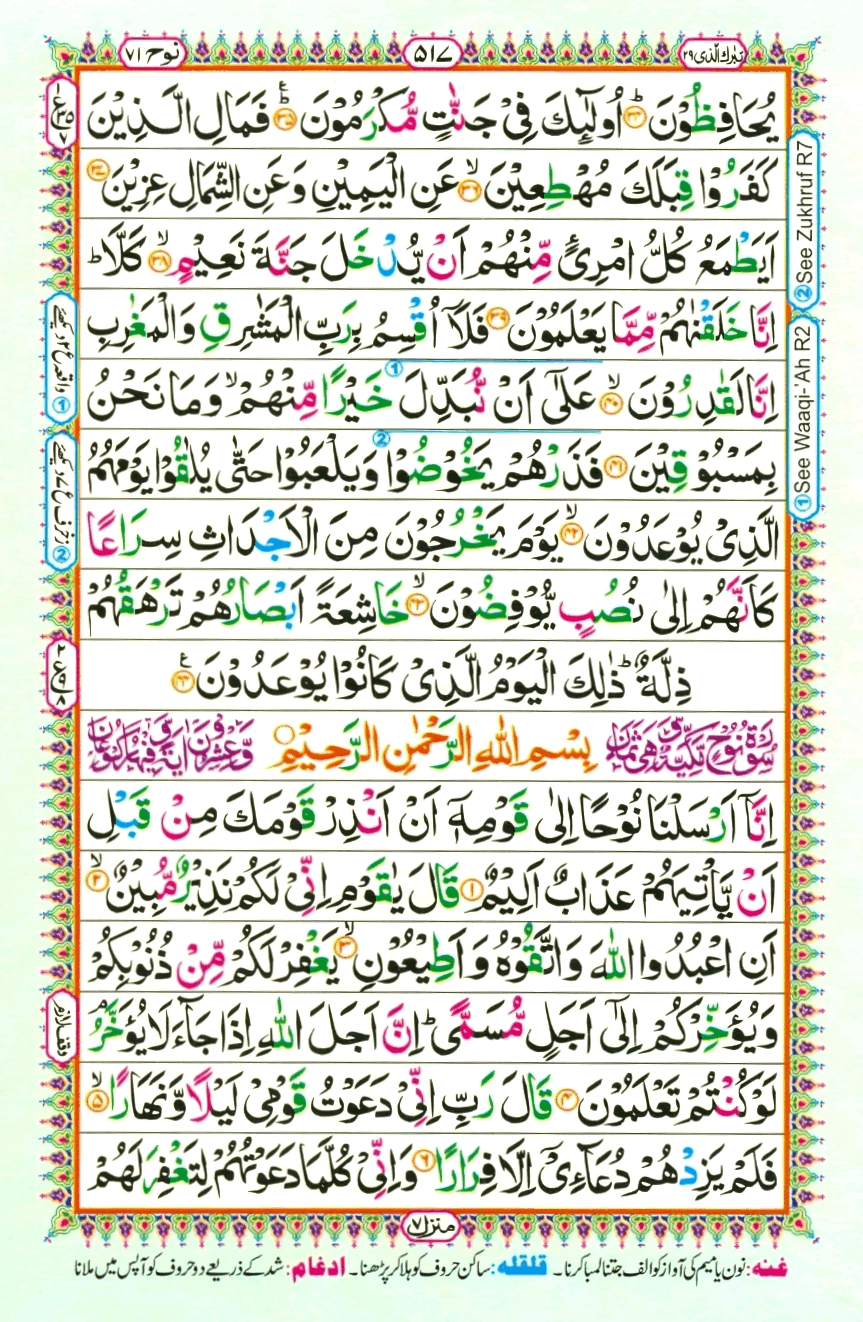 تبٰرك الّذی ۲۹
۵۱۷
نوح ۷۱
یُحَافِظُوْنَ ۟ؕ۳۴ اُولٰٓئِكَ فِیْ جَنّٰتٍ مُّكْرَمُوْنَ ۟ؕ۳۵ فَمَالِ الَّذِیْنَ
كَفَرُوْا قِبَلَكَ مُهْطِعِیْنَ ۟ۙ۳۶ عَنِ الْیَمِیْنِ وَعَنِ الشِّمَالِ عِزِیْنَ ۳۷
اَیَطْمَعُ كُلُّ امْرِئٍ مِّنْهُمْ اَنْ یُّدْخَلَ جَنَّةَ نَعِیْمٍ ۟ۙ۳۸ كَلَّا ؕ
اِنَّا خَلَقْنٰهُمْ مِّمَّا یَعْلَمُوْنَ ۳۹ فَلَاۤ اُقْسِمُ بِرَبِّ الْمَشٰرِقِ وَالْمَغٰرِبِ
اِنَّا لَقٰدِرُوْنَ ۟ۙ۴۰ عَلٰۤی اَنْ نُّبَدِّلَ خَیْرًا مِّنْهُمْ ۙ وَمَا نَحْنُ
بِمَسْبُوْقِیْنَ ۴۱ فَذَرْهُمْ یَخُوْضُوْا وَیَلْعَبُوْا حَتّٰی یُلٰقُوْا یَوْمَهُمُ
الَّذِیْ یُوْعَدُوْنَ ۟ۙ۴۲ یَوْمَ یَخْرُجُوْنَ مِنَ الْاَجْدَاثِ سِرَاعًا
كَاَنَّهُمْ اِلٰی نُصُبٍ یُّوْفِضُوْنَ ۟ۙ۴۳ خَاشِعَةً اَبْصَارُهُمْ تَرْهَقُهُمْ
ذِلَّةٌ ؕ ذٰلِكَ الْیَوْمُ الَّذِیْ كَانُوْا یُوْعَدُوْنَ ۴۴
سُوْرَةُ نُوْحٍ مَّكِّیَّةٌ وَّهِیَ ثَمَانٍ بِسْمِ اللهِ الرَّحْمٰنِ الرَّحِیْمِ وَّعِشْرُوْنَ اٰیَةً وَّفِیْهَا رُكُوْعَانِ
اِنَّاۤ اَرْسَلْنَا نُوْحًا اِلٰی قَوْمِهٖۤ اَنْ اَنْذِرْ قَوْمَكَ مِنْ قَبْلِ
اَنْ یَّاْتِیَهُمْ عَذَابٌ اَلِیْمٌ ۱ قَالَ یٰقَوْمِ اِنِّیْ لَكُمْ نَذِیْرٌ مُّبِیْنٌ ۟ۙ۲
اَنِ اعْبُدُوا اللهَ وَاتَّقُوْهُ وَاَطِیْعُوْنِ ۟ۙ۳ یَغْفِرْ لَكُمْ مِّنْ ذُنُوْبِكُمْ
وَیُؤَخِّرْكُمْ اِلٰۤی اَجَلٍ مُّسَمًّی ؕ اِنَّ اَجَلَ اللهِ اِذَا جَآءَ لَا یُؤَخَّرُ ۘ
لَوْ كُنْتُمْ تَعْلَمُوْنَ ۴ قَالَ رَبِّ اِنِّیْ دَعَوْتُ قَوْمِیْ لَیْلًا وَّنَهَارًا ۟ۙ۵
فَلَمْ یَزِدْهُمْ دُعَآءِیْۤ اِلَّا فِرَارًا ۶ وَاِنِّیْ كُلَّمَا دَعَوْتُهُمْ لِتَغْفِرَ لَهُمْ
② See Zukhruf R7
① See Waaqi-'Ah R2
وقف لازم
منزل ۷
غنه: نون یا میم کی آواز کو الف جتنا لمبا کرنا۔ قلقله: ساکن حروف کو ہلا کر پڑھنا۔ ادغام: شد کے ذریعے دو حروف کو آپس میں ملانا